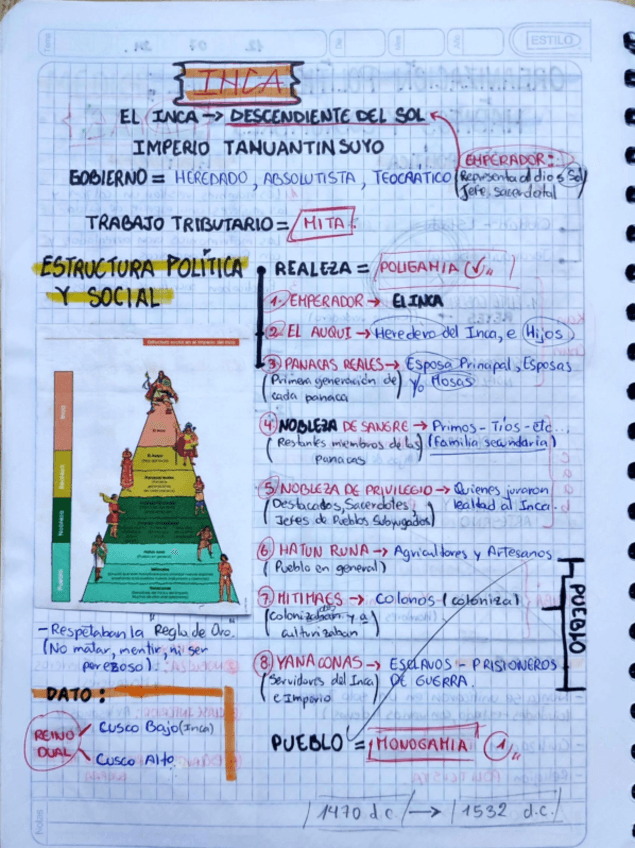 ESTILO
INCA
EL INCA → DESCENDIENTE DEL SOL
IMPERIO TAHUANTINSUYO
EMPERADOR:
Representa al dios Sol
Jefe sacerdotal
GOBIERNO = HEREDADO, ABSOLUTISTA, TEOCRATICO
TRABAJO TRIBUTARIO = MITA
ESTRUCTURA POLÍTICA
Y SOCIAL
REALEZA = POLIGAMIA (✓)
1. EMPERADOR → EL INCA
2. EL AUQUI → Heredero del Inca, e Hijos
3 PANACAS REALES → Esposa Principal, Esposas
(Primera generación de y/o Mosas
cada panaca
4. NOBLEZA DE SANGRE → Primos - Tíos - etc...
(Restantes miembros de las (Familia secundaria)
panacas
5. NOBLEZA DE PRIVILEGIO → Quienes juraron
(Destacados, Sacerdotes, lealtad al Inca.
Jefes de Pueblos Subyugados)
6 HATUN RUNA → Agricultores y Artesanos
(Pueblo en general)
7. MITIMAES → COLONOS (coloniza)
culturizaban
8 YANACONAS → ESCLAVOS - PRISIONEROS
(Servidores del Inca) DE GUERRA.
e Imperio
PUEBLO
PUEBLO = MONOGAMIA 1
Estructura social en el Imperio del Inca
El Inca
El Auqui
Nobleza
Pueblo
Hatun runa
Mitimaes
Yanaconas
- Respetaban la Regla de Oro.
(No matar, mentir, ni ser
perezoso).
DATO:
REINO
DUAL
Cusco Bajo (Inca)
Cusco Alto
1470 d.c → 1532 d.c.